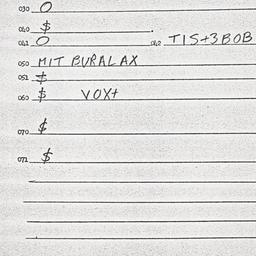 030 O
040 $
041 O 042 TIS+3BOB
050 MIT BURALAX
051 $
060 $ VOX+
070 $
071 $